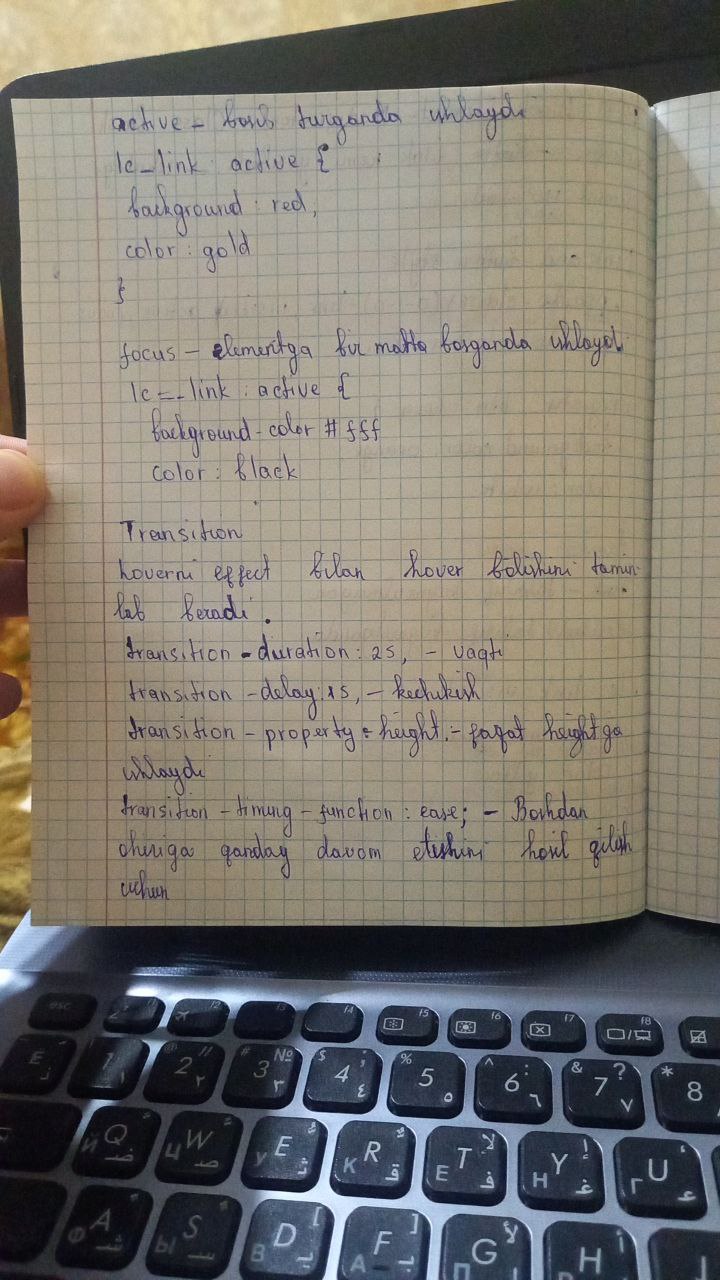 active - bosib turganda ishlaydi
lc_link: active {
background: red,
color: gold
}
focus - elementga bir marta bosganda ishlaydi
lc_link: active {
background-color #fff
color: black
Transition
hoverni effect bilan hover bölishini tamin-
lab beradi.
transition-duration: 2s, - vaqti
transition-delay: 1s, - kechikish
transition-property: height, - faqat heightga
ishlaydi
transition-timing-function: ease; - Boshdan
ohiriga qanday davom etishini hosil qilish
uchun
esc f2 f3 f4 f5 f6 f7 f8
1 2 3 № 4 5 6 7 ? * 8
Q W E R T Y U
A S D F G H